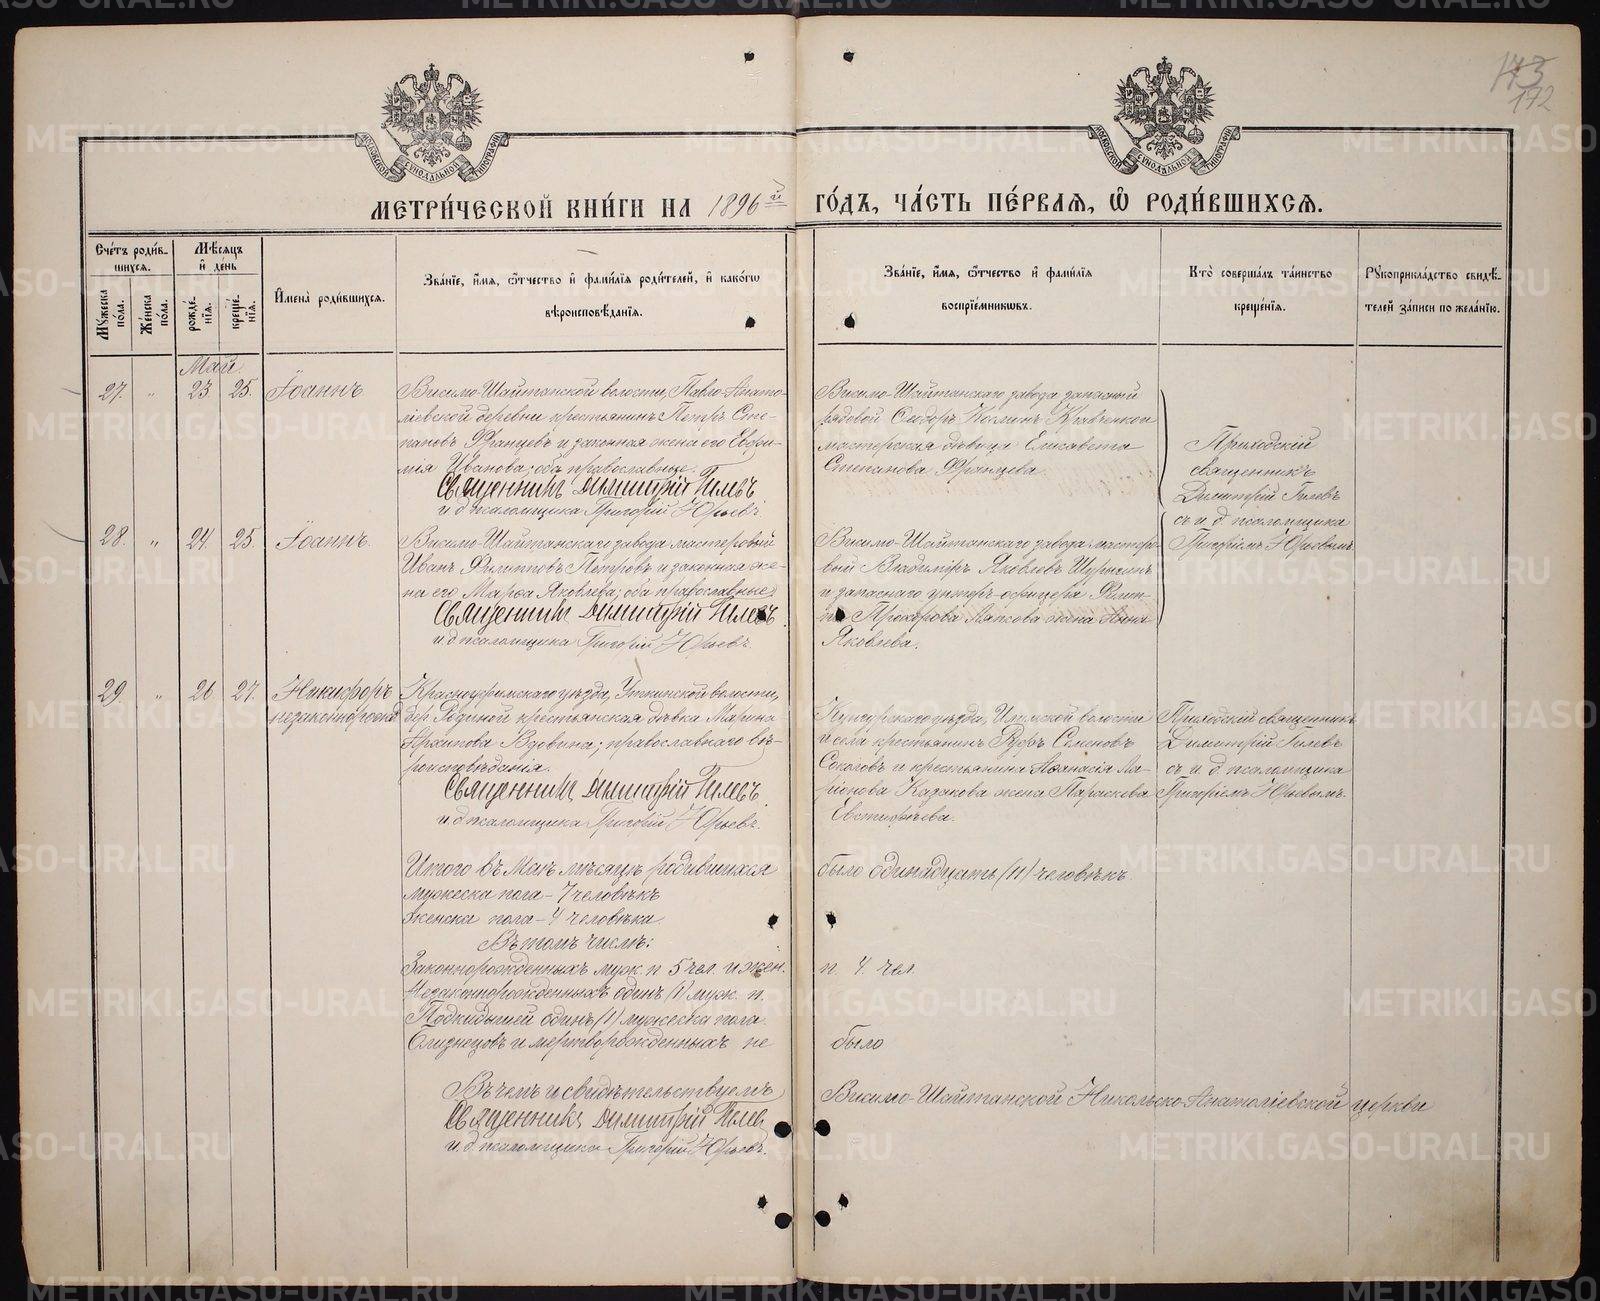 173
172
МОСКОВСКОЙ СѴНОДАЛЬНОЙ ТИПОГРАФІИ
МОСКОВСКОЙ СѴНОДАЛЬНОЙ ТИПОГРАФІИ
МЕТРИ́ЧЕСКОЙ КНИ́ГИ НА 1896й ГО́ДЪ, ЧА́СТЬ ПЕ́РВАЯ, Ѡ РОДИ́ВШИХСЯ.
Сче́тъ роди́в-
шихся.
Мꙋ́жеска по́ла.
Же́нска по́ла.
Мѣ́сяцъ
и҆ день
рожде́-
нія.
креще́-
нія.
И҆мена̀ роди́вшихся.
Зва́ніе, и҆́мя, ѻ҆́тчество и҆ фами́лія роди́телей, и҆ како́гѡ
вѣроисповѣ́данія.
Зва́ніе, и҆́мя, ѻ҆́тчество и҆ фами́лія
воспріе́мникѡвъ.
Кто̀ соверша́лъ та́инство
креще́нія.
Рꙋкоприкла́дство свидѣ́-
телей за́писи по жела́нію.
Май.
27. " 23. 25. Іоаннъ
Висимо-Шайтанской волости, Павло-Анато-
ліевской деревни крестьянинъ Петръ Сте-
пановъ Францевъ и законная жена его Евфи-
мія Иванова; оба православные.
Священникъ Димитрій Гилевъ
и. д. псаломщика Григорій Юрьевъ
Висимо-Шайтанскаго завода запасный
рядовой Сидоръ Козминъ Кравченко и
мастерская дѣвица Елисавета
Степанова Францева
Приходскій
священникъ
Димитрій Гилевъ
съ и. д. псаломщика
Григоріемъ Юрьевымъ
28. " 24. 25. Іоаннъ.
Висимо-Шайтанскаго завода мастеровый
Иванъ Филипповъ Петровъ и законная же-
на его Марѳа Яковлева; оба православные
Священникъ Димитрій Гилевъ
и. д. псаломщика Григорій Юрьевъ.
Висимо-Шайтанскаго завода мастеро-
вый Владиміръ Яковлевъ
и запаснаго унтеръ-офицера Филип-
па Прохорова жена Анна
Яковлева.
29 " 26 27. Никифоръ
незаконнорожд.
Красноуфимскаго уѣзда, Уткинской волости,
дер. Родиной крестьянская дѣвка Марина
Архипова Вдовина; православнаго вѣ-
роисповѣданія.
Священникъ Димитрій Гилевъ
и. д. псаломщика Григорій Юрьевъ.
Кунгурскаго уѣзда, волости
и села крестьянинъ Руфъ Семеновъ
Соколовъ и крестьянина Аѳанасія Ла-
ріонова Казакова жена Параскева
Евстифѣева.
Приходскій священникъ
Димитрій Гилевъ
съ и. д. псаломщика
Григоріемъ Юрьевымъ.
Итого въ Маѣ мѣсяцѣ родившихся было одинадцать (11) человѣкъ.
мужеска пола - 7 человѣкъ
женска пола - 4 человѣка.
Въ томъ числѣ:
Законнорожденныхъ муж. п. 5 чел. и жен. п. 4. чел.
Незаконнорожденныхъ одинъ (1) муж. п.
Подкидышей одинъ (1) мужеска пола.
Близнецовъ и мертворожденныхъ не было
Въ чемъ и свидѣтельствуемъ Висимо-Шайтанской Никольско-Анатоліевской церкви
Священникъ Димитрій Гилевъ
и. д. псаломщика Григорій Юрьевъ.
METRIKI.GASO-URAL.RU